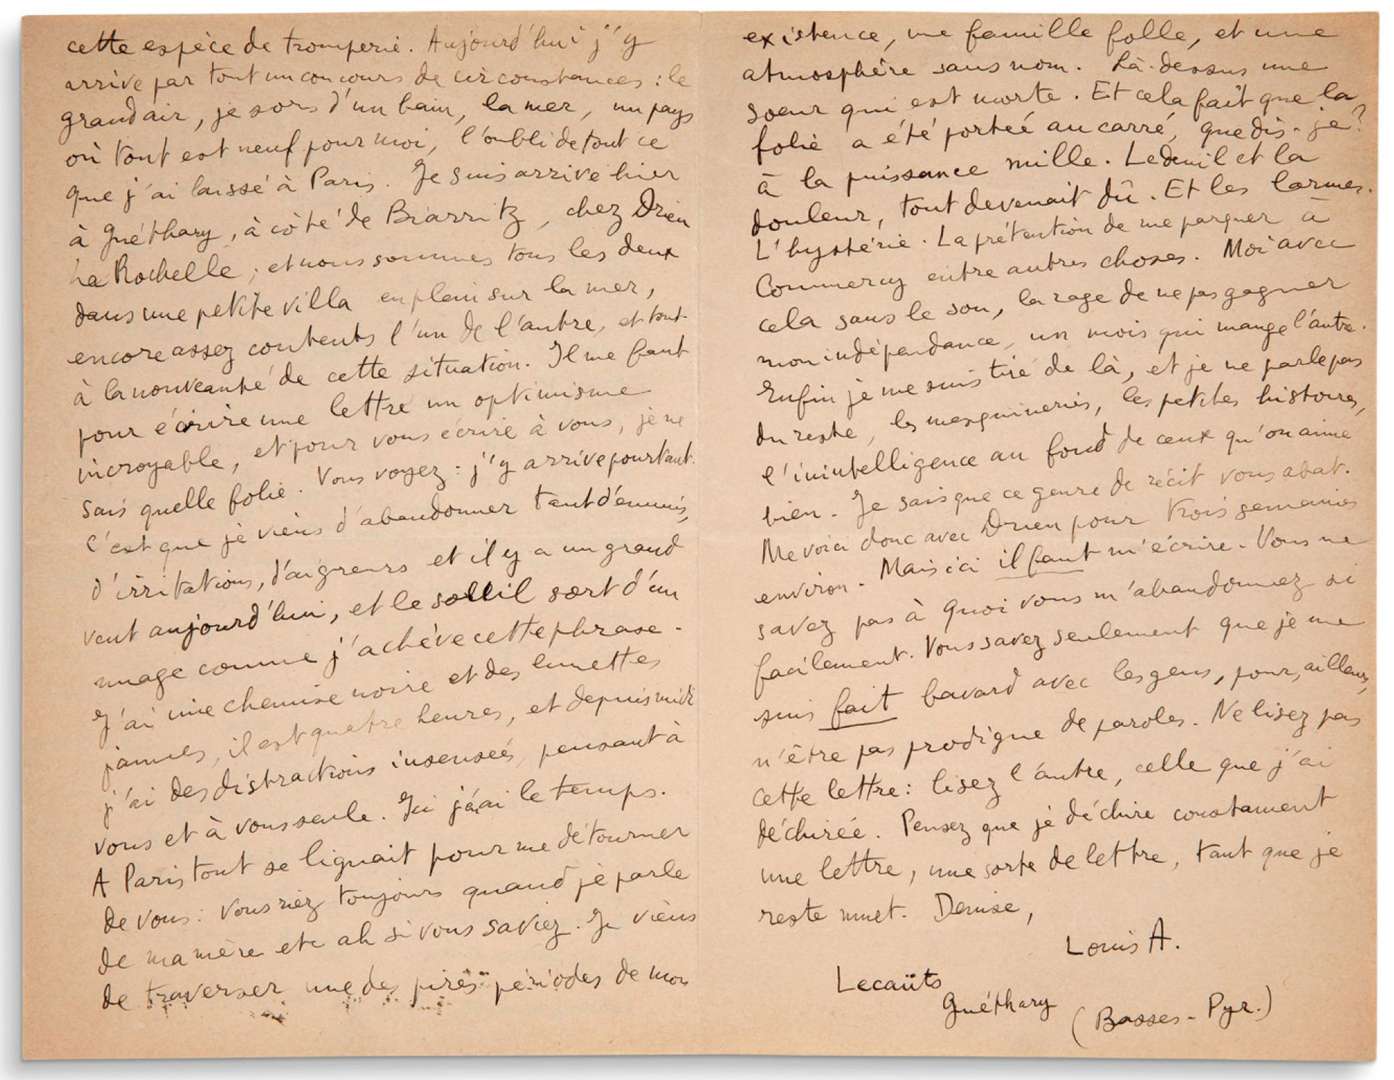 cette espèce de tromperie. Aujourd'hui j'y
arrive par tout un concours de circonstances : le
grand air, je sors d'un bain, la mer, un pays
où tout est neuf pour moi, l'oubli de tout ce
que j'ai laissé à Paris. Je suis arrivé hier
à Guéthary, à côté de Biarritz, chez Drieu
La Rochelle ; et nous sommes tous les deux
dans une petite villa en plein sur la mer,
encore assez contents l'un de l'autre, et tout
à la nouveauté de cette situation. Il me faut
pour écrire une lettre un optimisme
incroyable, et pour vous écrire à vous, je ne
sais quelle folie. Vous voyez : j'y arrive pourtant.
C'est que je viens d'abandonner tant d'ennuis,
d'irritations, d'aigreurs et il y a un grand
vent aujourd'hui, et le soleil sort d'un
nuage comme j'achève cette phrase.
J'ai une chemise noire et des lunettes
jaunes, il est quatre heures, et depuis midi
j'ai des distractions insensées, pensant à
vous et à vous seule. Ici j'ai le temps.
A Paris tout se liguait pour me détourner
de vous : vous riez toujours quand je parle
de ma mère etc ah si vous saviez. Je viens
de traverser une des pires périodes de mon
existence, une famille folle, et une
atmosphère sans nom. Là-dessus une
soeur qui est morte. Et cela fait que la
folie a été portée au carré, que dis-je ?
à la puissance mille. Le deuil et la
douleur, tout devenait dû. Et les larmes.
L'hystérie. La prétention de me parquer à
Commercy entre autres choses. Moi avec
cela sans le son, la rage de ne pas gagner
mon indépendance, un mois qui mange l'autre.
Enfin je me suis tiré de là, et je ne parle pas
du reste, les mesquineries, les petites histoires,
l'inintelligence au fond de ceux qu'on aime
bien. Je sais que ce genre de récit vous abat.
Me voici donc avec Drieu pour trois semaines
environ. Mais ici il faut m'écrire. Vous ne
savez pas à quoi vous m'abandonnez si
facilement. Vous savez seulement que je me
suis fait bavard avec les gens, pour, ailleurs,
n'être pas prodigue de paroles. Ne lisez pas
cette lettre : lisez l'autre, celle que j'ai
déchirée. Pensez que je déchire constament
une lettre, une sorte de lettre, tant que je
reste muet. Denise,
Louis A.
Lecaüts
Guéthary
(Basses-Pyr.)